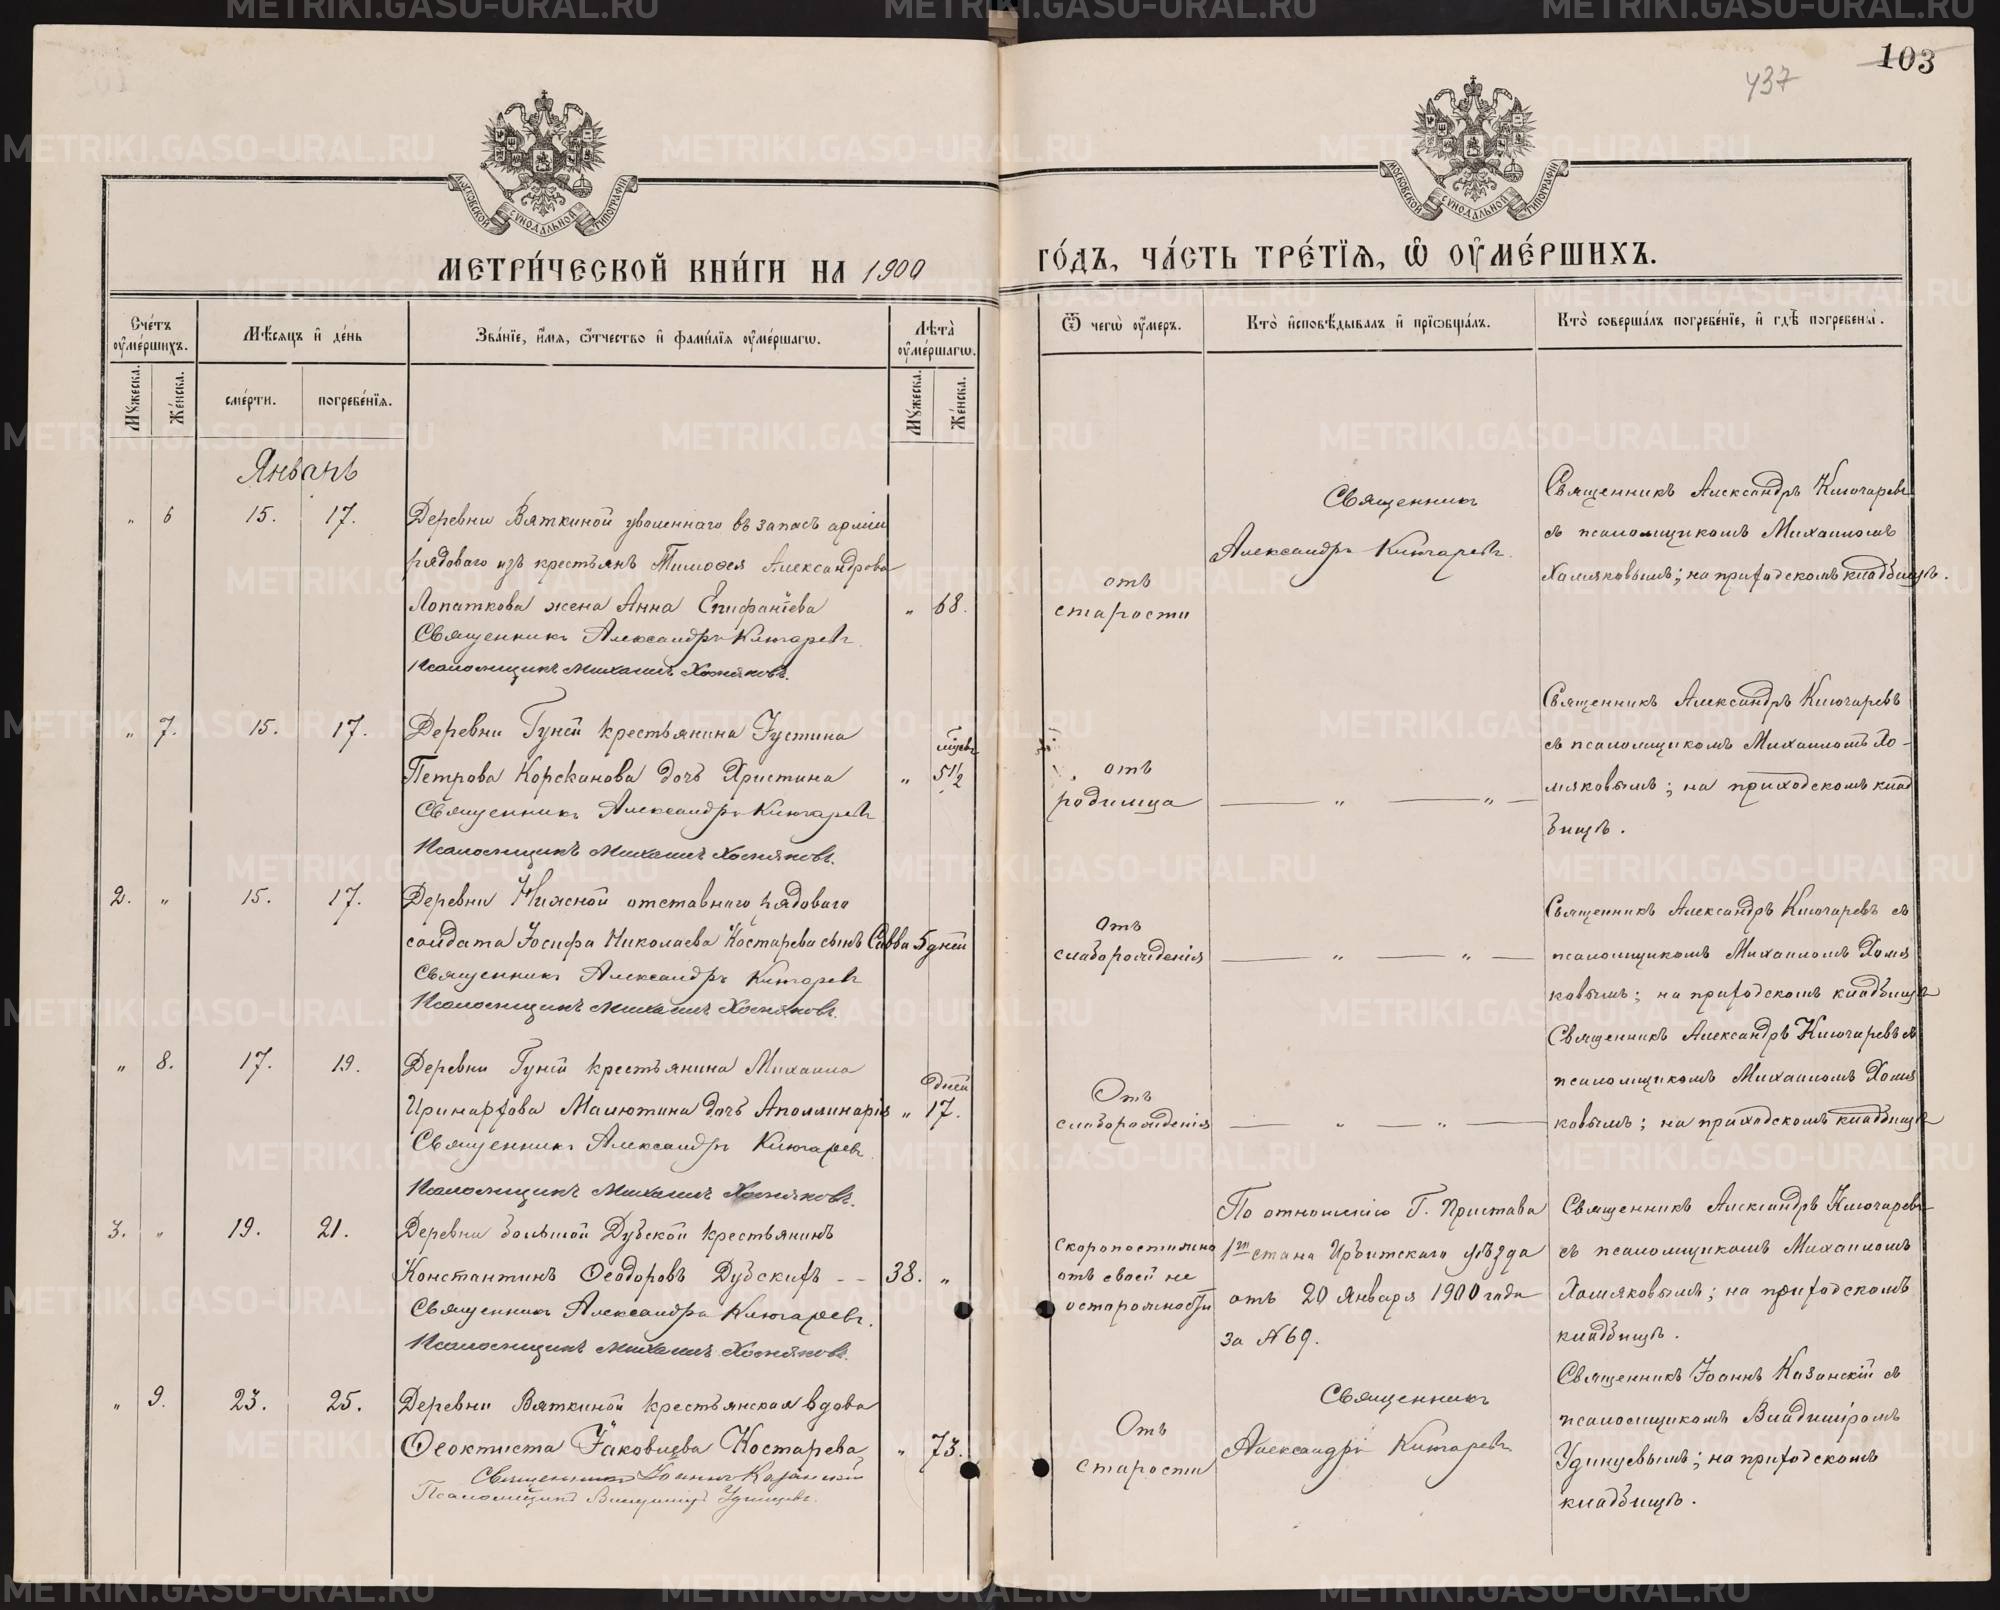 103
437
МОСКОВСКОЙ СѴНОДАЛЬНОЙ ТИПОГРАФІИ
МОСКОВСКОЙ СѴНОДАЛЬНОЙ ТИПОГРАФІИ
МЕТРИ́ЧЕСКОЙ КНИ́ГИ НА 1900
ГО́ДЪ, ЧА́СТЬ ТРЕ́ТЇѦ, Ѡ҆ ОУ҆МЕ́РШИХЪ.
Сче́тъ оу҆ме́ршихъ.
Мꙋ́жеска.
Же́нска.
Мѣ́сѧцъ и҆ де́нь
сме́рти.
погребе́нїѧ.
Зва́нїе, и҆́мѧ, ѻ҆́тчество и҆ фами́лїѧ оу҆ме́ршагѡ.
Лѣ́та оу҆ме́ршагѡ.
Мꙋ́жеска.
Же́нска.
Ѿ чегѡ̀ оу҆́меръ.
Кто̀ и҆сповѣ́дывалъ и҆ прїѡбща́лъ.
Кто̀ соверша́лъ погребе́нїе, и҆ гдѣ̀ погребены̀.
Январь
„ 6 15. 17.
Деревни Вяткиной уволеннаго въ запасъ арміи
рядоваго изъ крестьянъ Тимоѳея Александрова
Лопаткова жена Анна Епифаніева „ 68.
Священникъ Александръ Ключаревъ
Псаломщикъ Михаилъ Хомяковъ.
отъ
старости
Священникъ
Александръ Ключаревъ.
Священникъ Александръ Ключаревъ
съ псаломщикомъ Михаиломъ
Хомяковымъ; на приходскомъ кладбищѣ.
„ 7. 15. 17.
Деревни Гуней крестьянина Іустина
Петрова Корсканова дочь Христина „ мѣсяц. 5½
Священникъ Александръ Ключаревъ
Псаломщикъ Михаилъ Хомяковъ.
отъ
родимца
— „ — „ —
Священникъ Александръ Ключаревъ
съ псаломщикомъ Михаиломъ Хо-
мяковымъ; на приходскомъ клад
бищѣ.
2. „ 15. 17.
Деревни Нижной отставнаго рядоваго
солдата Іосифа Николаева Костарева сынъ Савва 5 дней
Священникъ Александръ Ключаревъ
Псаломщикъ Михаилъ Хомяковъ.
Отъ
слаборожденія
— „ — „ —
Священникъ Александръ Ключаревъ съ
псаломщикомъ Михаиломъ Хомя
ковымъ; на приходскомъ кладбищѣ
„ 8. 17. 19.
Деревни Гуней крестьянина Михаила
Иринархова Малютина дочь Аполлинарія „ дней 17.
Священникъ Александръ Ключаревъ
Псаломщикъ Михаилъ Хомяковъ.
Отъ
слаборожденія
— „ — „ —
Священникъ Александръ Ключаревъ съ
псаломщикомъ Михаиломъ Хомя
ковымъ; на приходскомъ кладбищѣ
3. „ 19. 21.
Деревни Большой Дубской крестьянинъ
Константинъ Ѳеодоровъ Дубскихъ - - 38. „
Священникъ Александръ Ключаревъ.
Псаломщикъ Михаилъ Хомяковъ.
Скоропостижно
отъ своей не
осторожности
По отношенію Г. Пристава
1го стана Ирбитскаго уѣзда
отъ 20 Января 1900 года
за № 69.
Священникъ Александръ Ключаревъ
съ псаломщикомъ Михаиломъ
Хомяковымъ; на приходскомъ
кладбищѣ.
„ 9. 23. 25.
Деревни Вяткиной крестьянская вдова
Ѳеоктиста Іаковлева Костарева „ 73.
Священникъ Іоаннъ Казанскій
Псаломщикъ Владиміръ Удинцевъ.
Отъ
старости
Священникъ
Александръ Ключаревъ
Священникъ Іоаннъ Казанскій съ
псаломщикомъ Владиміромъ
Удинцевымъ; на приходскомъ
кладбищѣ.
METRIKI.GASO-URAL.RU